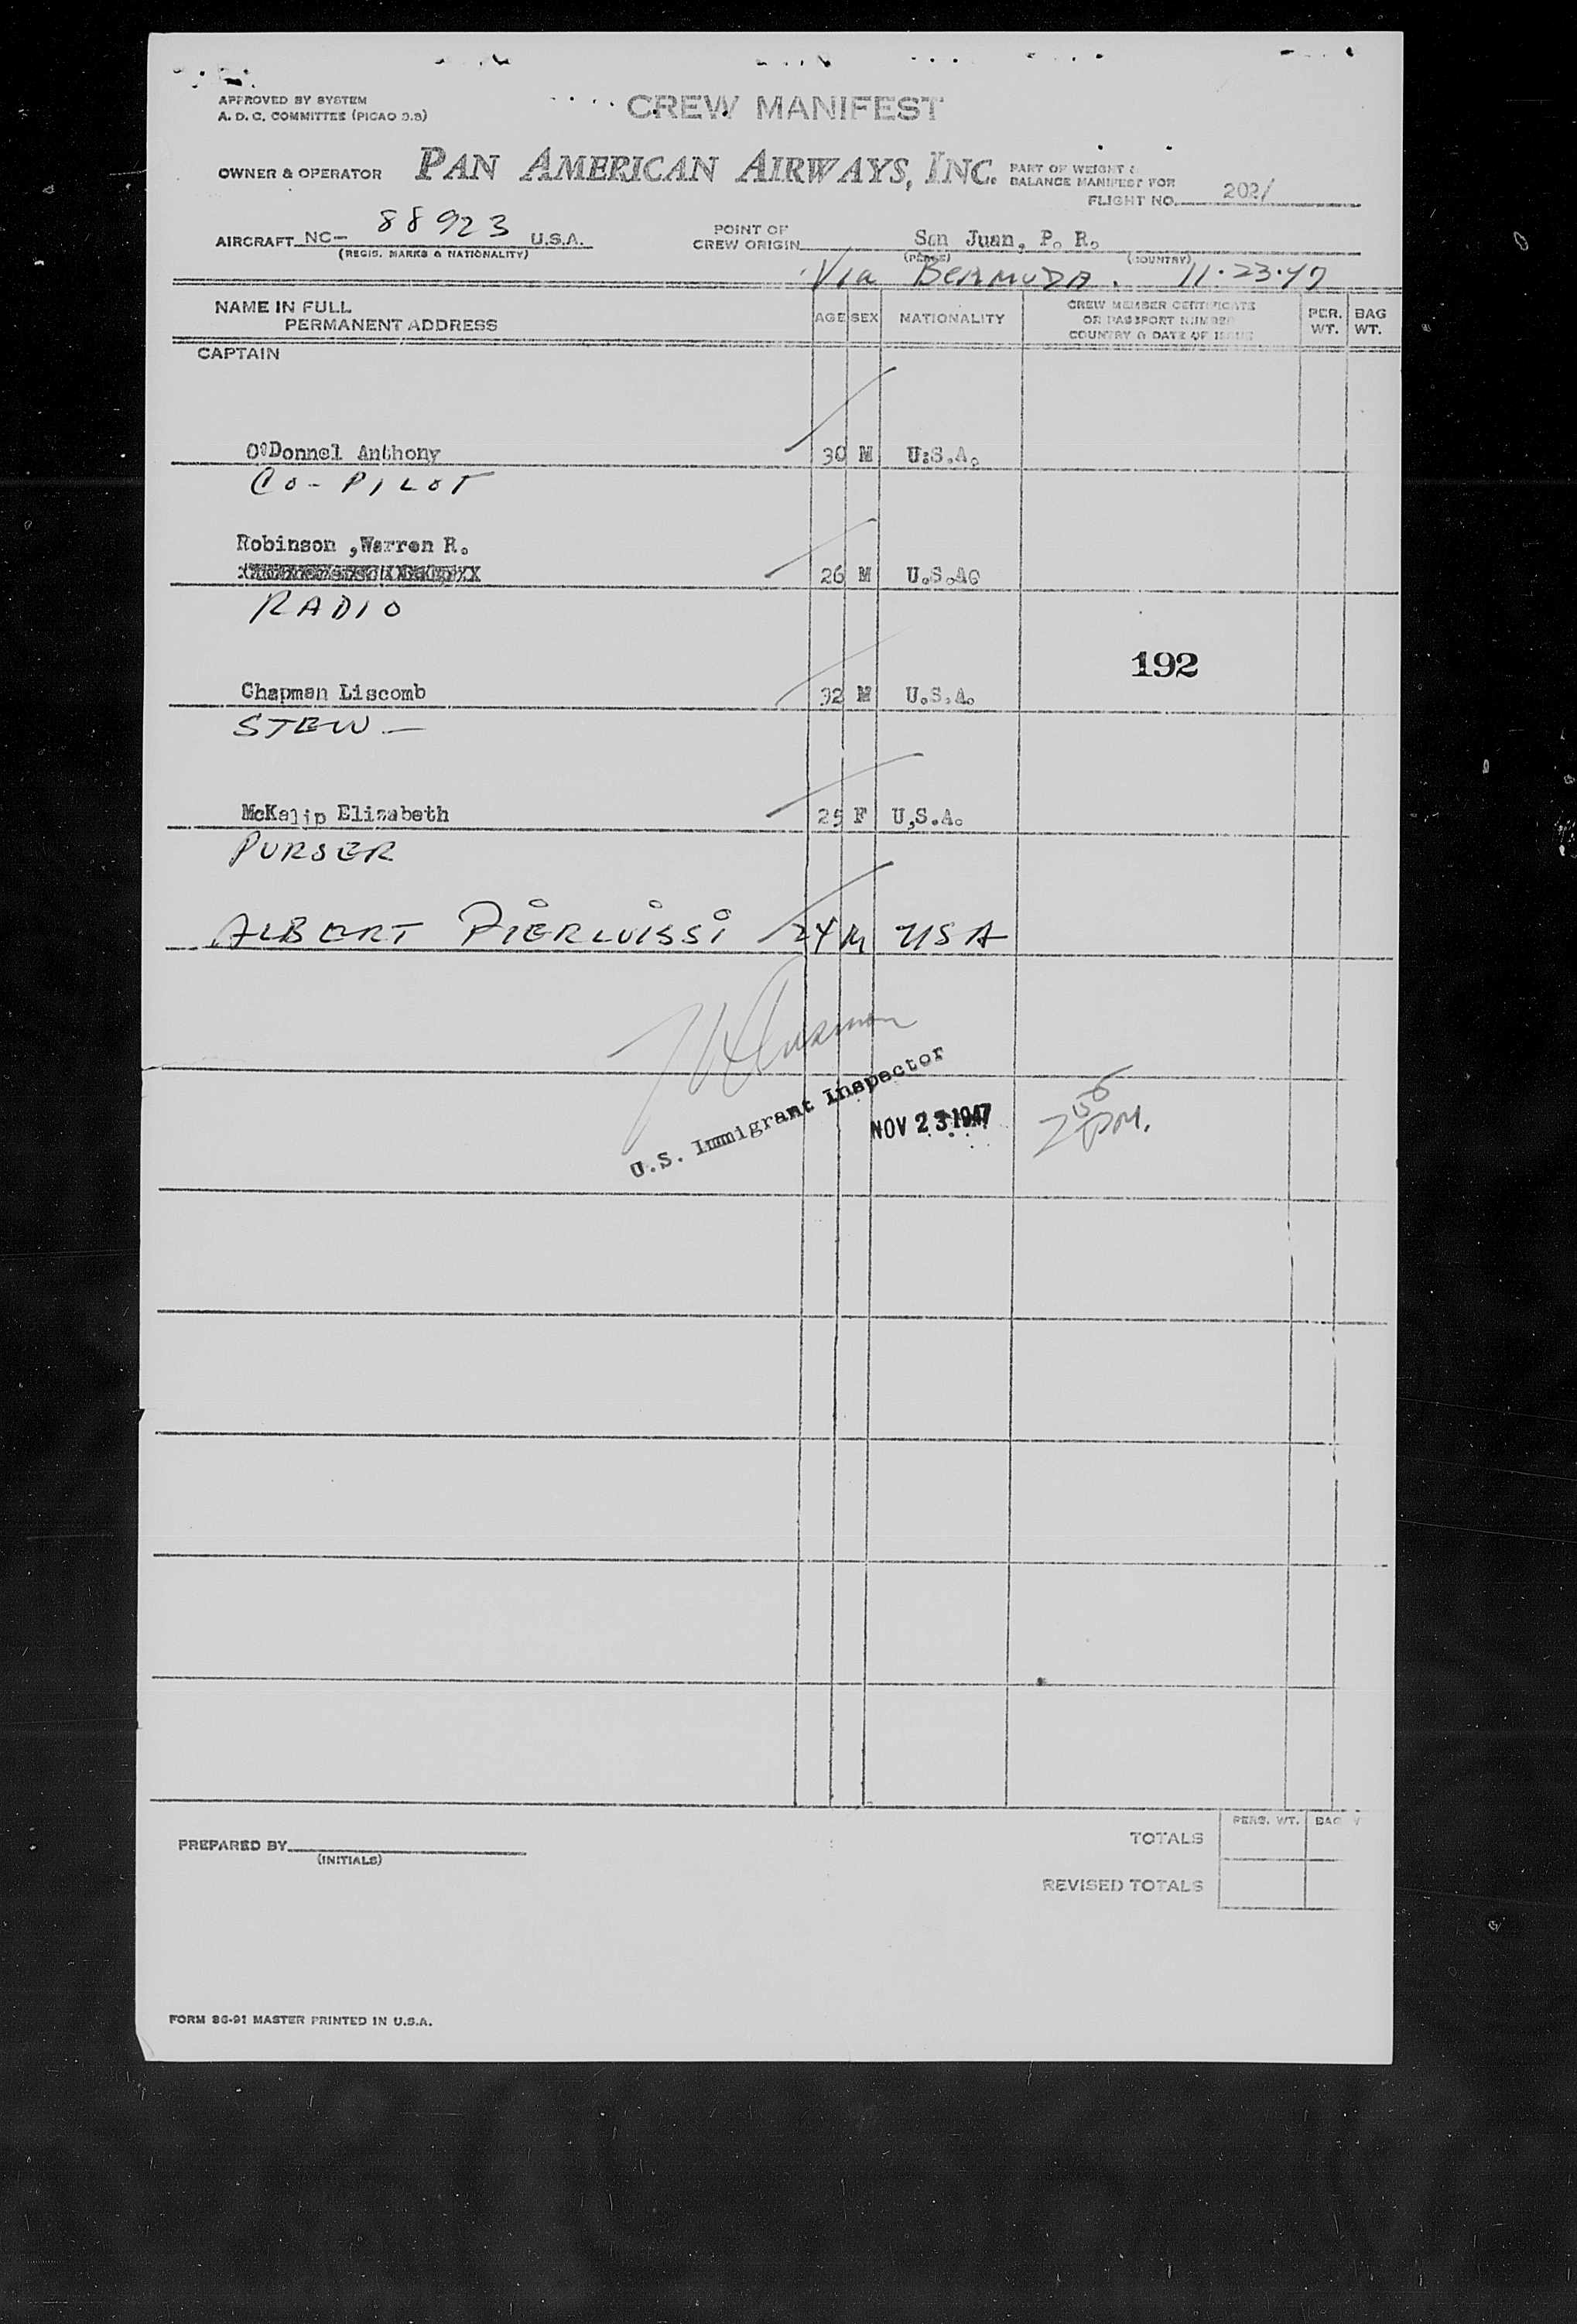 APPROVED BY SYSTEM
A. D. C. COMMITTEE (PICAO 9.8)
CREW MANIFEST
OWNER & OPERATOR PAN AMERICAN AIRWAYS, INC. PART OF WEIGHT &
BALANCE MANIFEST FOR
FLIGHT NO. 202/
AIRCRAFT NC- 88923 U.S.A.
(REGIS. MARKS & NATIONALITY)
POINT OF
CREW ORIGIN San Juan, P. R.
(PLACE) (COUNTRY)
Via BERMUDA. 11.23.47
NAME IN FULL
PERMANENT ADDRESS
AGE SEX NATIONALITY
CREW MEMBER CERTIFICATE
OR PASSPORT NUMBER
COUNTRY & DATE OF ISSUE
PER. WT.
BAG WT.
CAPTAIN
O'Donnel Anthony 30 M U.S.A.
CO-PILOT
Robinson ,Warren R.
26 M U.S.A.
RADIO
192
Chapman Liscomb 32 M U.S.A.
STEW -
McKalip Elizabeth 25 F U,S.A.
PURSER
ALBERT PIERLUISSI 24 M USA
U.S. Immigrant Inspector
NOV 23 1947
PM.
PREPARED BY
(INITIALS)
PERS. WT. BAG W
TOTALS
REVISED TOTALS
FORM 86-91 MASTER PRINTED IN U.S.A.